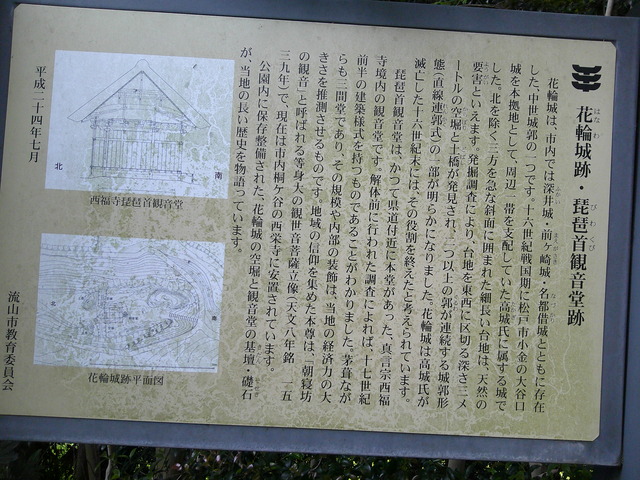 花輪城跡・琵琶首観音堂跡
はなわ
びわくび
花輪城は、市内では深井城・前ヶ崎城・名都借城とともに存在
した、中世城郭の一つです。十六世紀戦国期に松戸市小金の大谷口
城を本拠地として、周辺一帯を支配していた高城氏に属する城で
した。北を除く三方を急な斜面に囲まれた細長い台地は、天然の
要害といえます。発掘調査により、台地を東西に区切る深さ三メ
ートルの空堀と土橋が発見され、二つ以上の郭が連続する城郭形
態(直線連郭式)の一部が明らかになりました。花輪城は高城氏が
滅亡した十六世紀末には、その役割を終えたと考えられています。
琵琶首観音堂は、かつて県道付近に本堂があった、真言宗西福
寺境内の観音堂です。解体前に行われた調査によれば、十七世紀
前半の建築様式を持つものであることがわかりました。茅葺なが
らも三間堂であり、その規模や内部の装飾は、当地の経済力の大
きさを推測させるものです。地域の信仰を集めた本尊は、「朝寝坊
の観音」と呼ばれる等身大の観世音菩薩立像(天文八年銘 一五
三九年)で、現在は市内桐ケ谷の西栄寺に安置されています。
公園内に保存整備された、花輪城の空堀と観音堂の基壇・礎石
が、当地の長い歴史を物語っています。
北
南
西福寺琵琶首観音堂
花輪城跡平面図
平成二十四年七月
流山市教育委員会